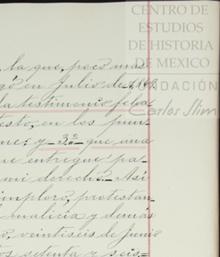 CENTRO DE
ESTUDIOS
DE HISTORIA
DE MEXICO
FUNDACIÓN
Carlos Slim
la que, poco mas
en Julio de
la testimonio
esto, en los pun
y 3º que una
entregue pa
mi derecho. Asi
imploro, protestan
malicia y demás
veintiseis de Junio
setenta y seis